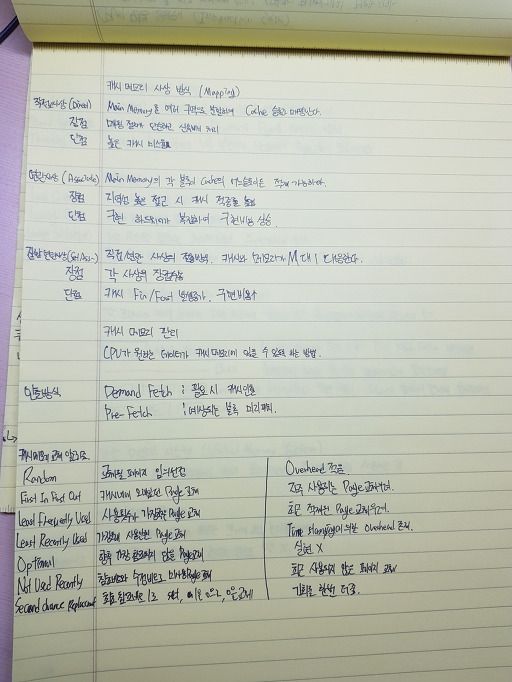 캐시 메모리 사상 방식 (Mapping)
직접사상 (Direct) Main Memory를 여러 구역으로 분할하여 Cache 슬롯과 매핑한다.
장점 단순하고
단점 높은 캐시 미스율
연관사상 (Associate) Main Memory의 각 블록이 Cache의 어느슬롯이든 적재 가능하다.
장점 지역성 높은 접근 시 캐시 적중률 높음
단점 구현 하드웨어가 복잡하여 구현비용 상승
집합 연관사상(Set Ass~) 직접/연관 사상의 절충방식. 캐시와 메모리가 M 대 1 대응한다.
장점 각 사상의 장점수용
단점 캐시 발생증가, 구현비용
캐시 메모리 관리
CPU가 원하는 데이터가 캐시메모리에 있을 수 있도록 하는 방법.
인출방식 Demand Fetch : 필요 시 캐시인출
Pre-Fetch : 예상되는 블록 미리패치.
캐시메모리 교체 알고리즘
Random 교체될 페이지 임의선정 Overhead 적음.
First In First Out 캐시내에 오래있던 Page 교체 자주 사용되는 Page 교체우려.
Least Frequently Used 사용횟수가 가장적은 Page 교체 최근 적재된 Page 교체우려.
Least Recently Used 가장오래 사용안한 Page 교체 Time stamping에 의한 overhead 존재.
Optimal 향후 가장 참조되지 않을 Page교체 실현 X
Not Used Recently 참조비트와 수정비트로 미사용Page 교체 최근 사용되지 않은 페이지 교체
Second chance Replacement 최초 참조비트 1로 set, 0으로 기회를 한번 더줌.